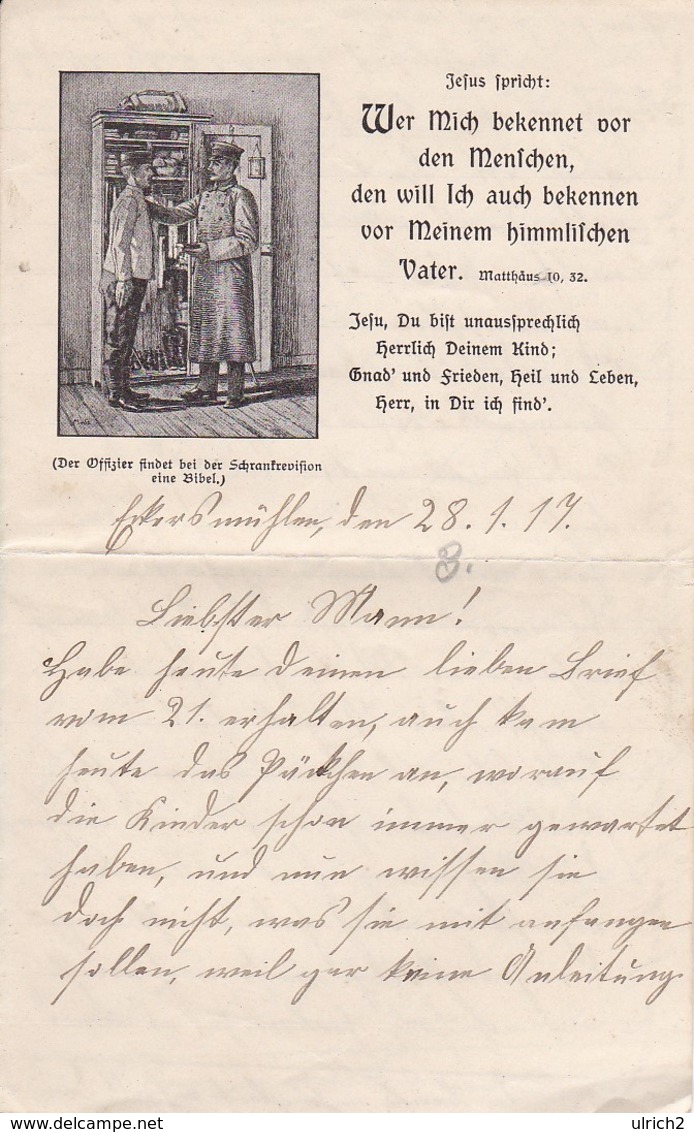 Jesus spricht:
Wer Mich bekennet vor
den Menschen,
den will Ich auch bekennen
vor Meinem himmlischen
Vater. Matthäus 10, 32.
Jesu, Du bist unaussprechlich
Herrlich Deinem Kind;
Gnad' und Frieden, Heil und Leben,
Herr, in Dir ich find'.
(Der Offizier findet bei der Schrankrevision
eine Bibel.)
Eckersmühlen, den 28. 1. 17.
3.
Liebster Mann!
Habe heute deinen lieben Brief
vom 21. erhalten, auch kam
heute das Päckchen an, worauf
die Kinder schon immer gewartet
haben, und nun wissen sie
doch nicht, was sie mit anfangen
sollen, weil gar keine Anleitung
DELCAMPE.NET
ulrich2